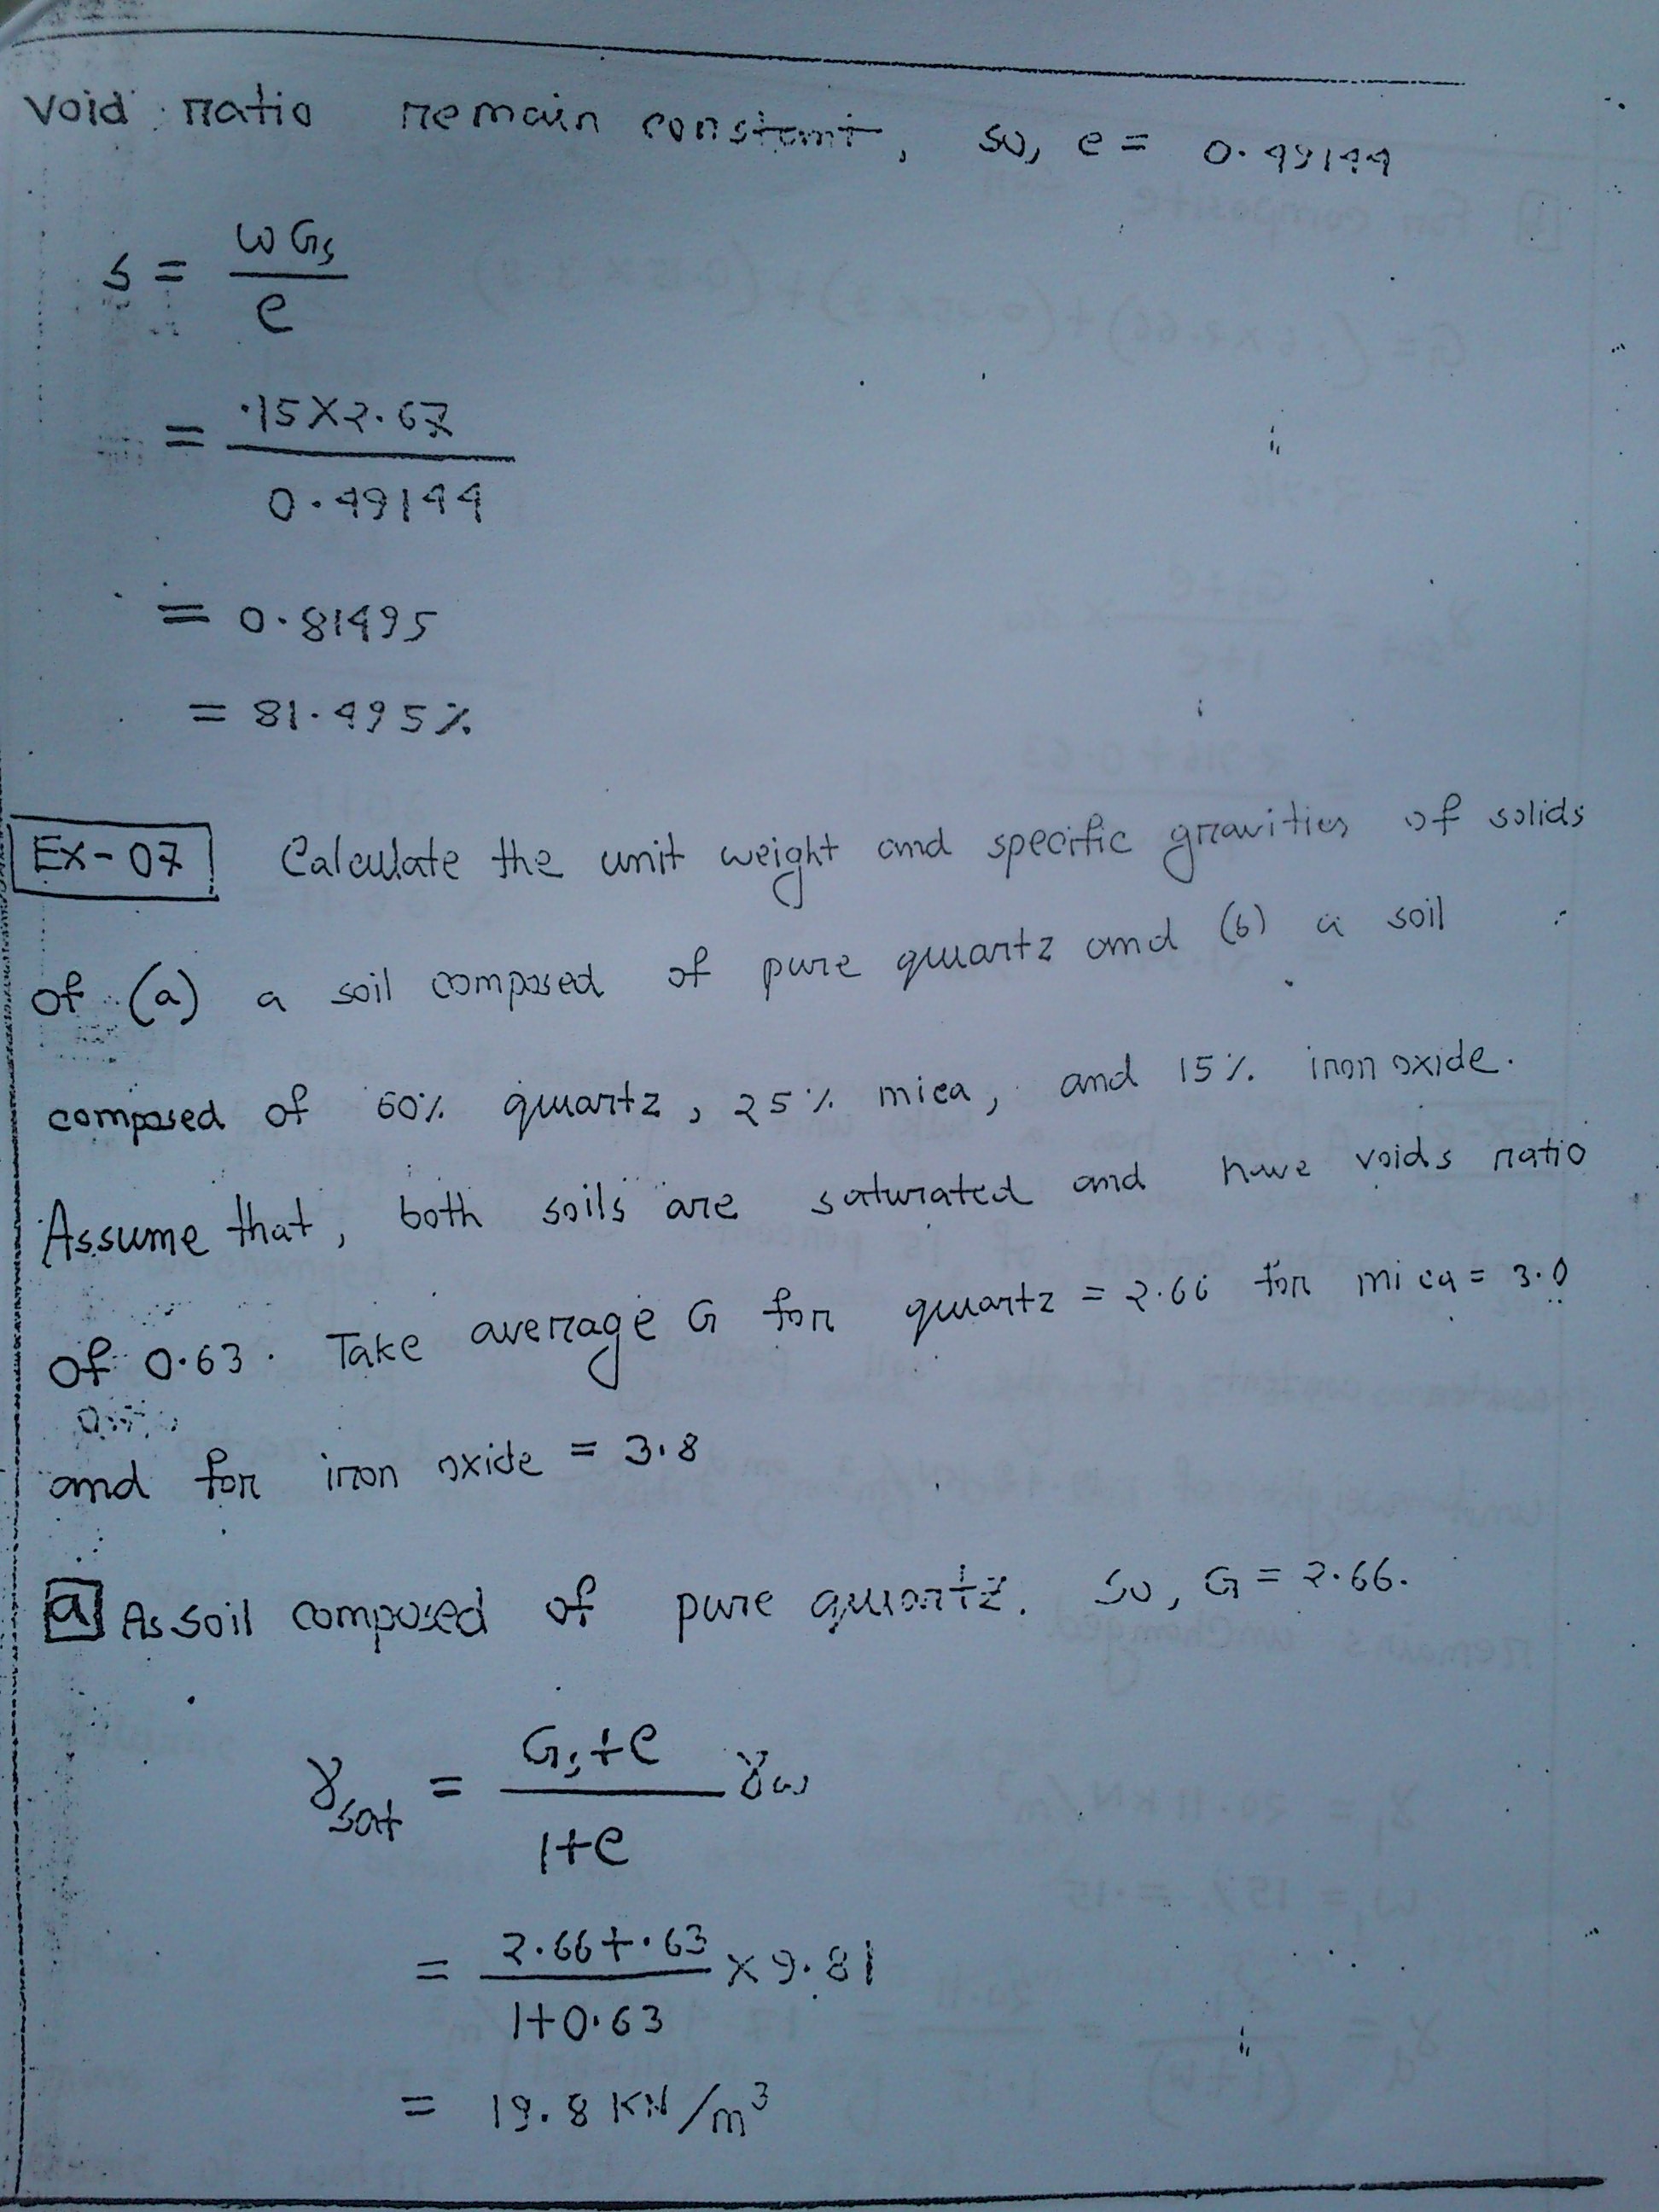 void ratio remain constant, so, e = 0.49144
s = wGs / e
= .15×2.67 / 0.49144
= 0.81495
= 81.495%
Ex-07 Calculate the unit weight and specific gravities of solids
of (a) a soil composed of pure quartz and (b) a soil
composed of 60% quartz, 25% mica, and 15% iron oxide.
Assume that, both soils are saturated and have voids ratio
of 0.63. Take average G for quartz = 2.66 for mica = 3.0
and for iron oxide = 3.8
a As soil composed of pure quartz. so, G = 2.66.
γsat = Gs+e / 1+e γw
= 2.66+.63 / 1+0.63 ×9.81
= 19.8 KN/m³